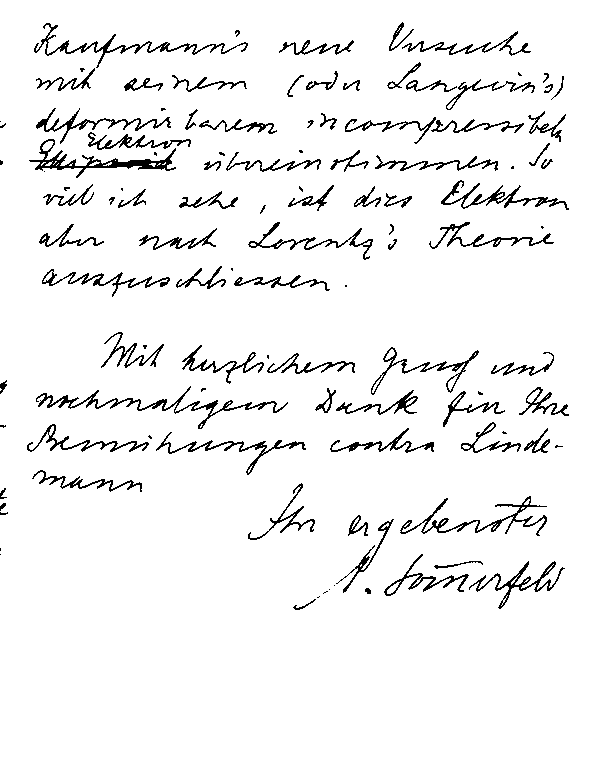 Kaufmann's neue Versuche
mit seinem (oder Langevin's)
deformirbarem incompressibeln
Elektron
Ellipsoid übereinstimmen. So
viel ich sehe, ist dies Elektron
aber nach Lorentz's Theorie
auszuschliessen.
Mit herzlichem Gruß und
nochmaligem Dank für Ihre
Bemühungen contra Linde-
mann
Ihr ergebenster
A. Som̄erfeld